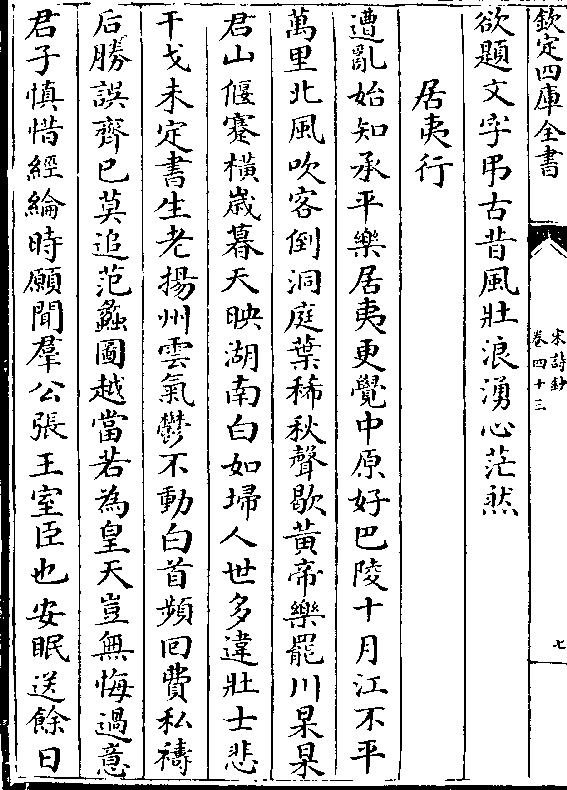 欽定四庫全書
宋詩鈔
卷四十三
七
欲題文字弔古昔風壯浪湧心茫然
居夷行
遭亂始知承平樂居夷更覺中原好巴陵十月江不平
萬里北風吹客倒洞庭葉稀秋聲歇黃帝樂罷川杲杲
君山偃蹇橫歲暮天映湖南白如埽人世多違壯士悲
干戈未定書生老揚州雲氣鬱不動白首頻回費私禱
后勝誤齊已莫追范蠡圖越當若為皇天豈無悔過意
君子慎惜經綸時願聞羣公張王室臣也安眠送餘日